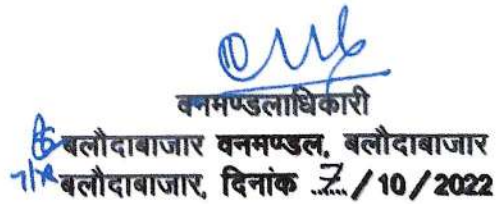 वनमण्डलाधिकारी
बलौदाबाजार वनमण्डल, बलौदाबाजार
बलौदाबाजार, दिनांक ..7.. / 10 / 2022